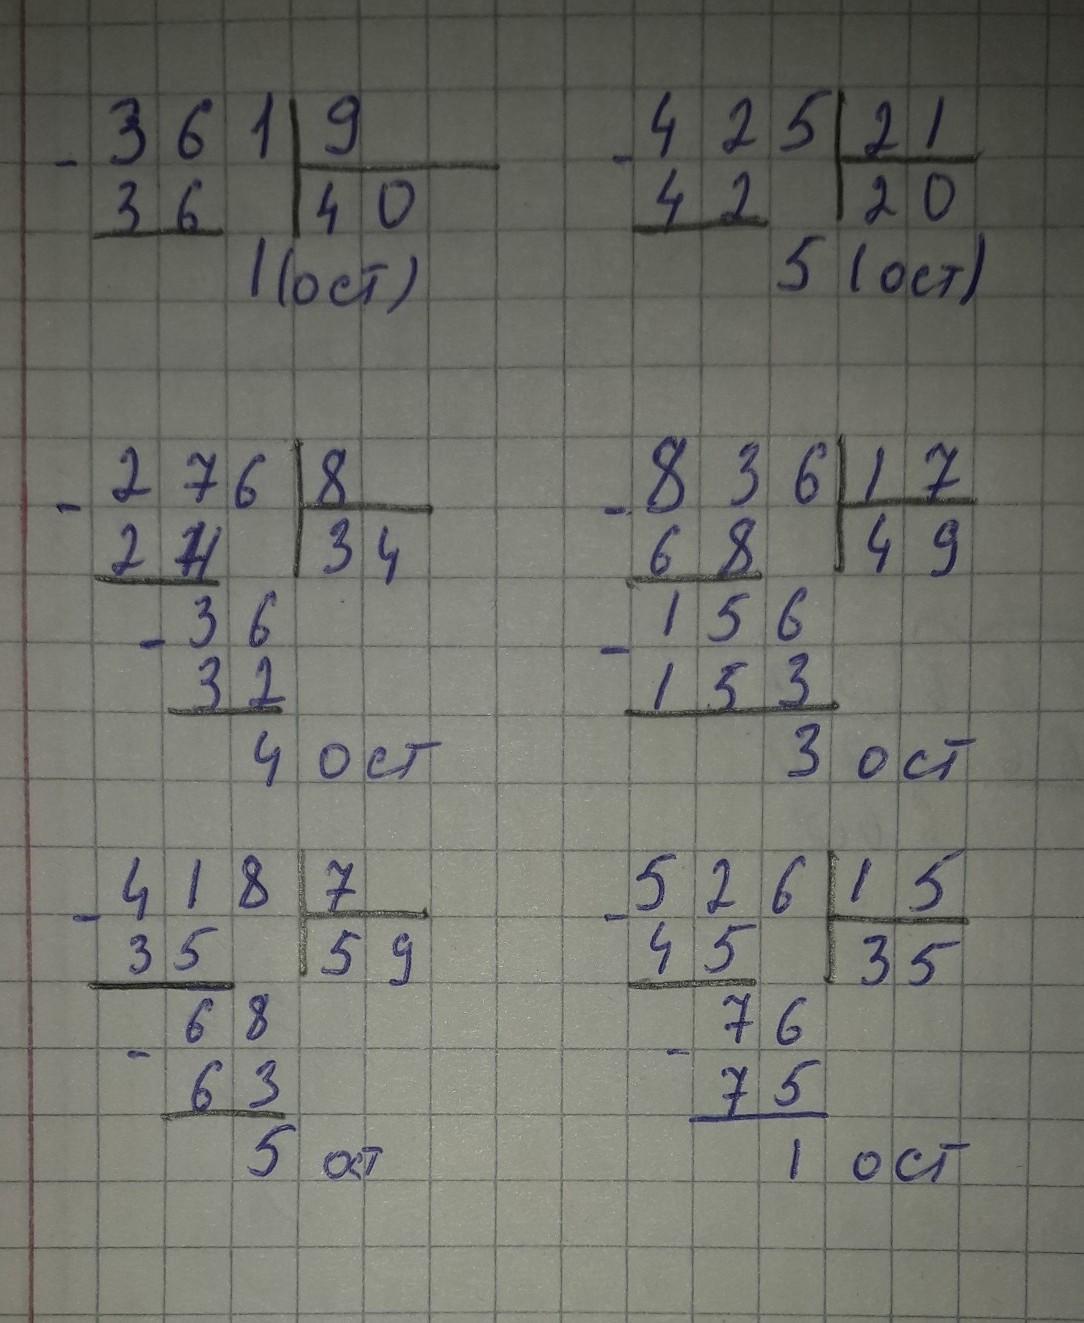 - 361 | 9
36 | 40
1 (ост)
- 425 | 21
42 | 20
5 (ост)
- 276 | 8
24 | 34
- 36
32
4 ост
- 836 | 17
68 | 49
- 156
153
3 ост
- 418 | 7
35 | 59
- 68
63
5 ост
- 526 | 15
45 | 35
- 76
75
1 ост